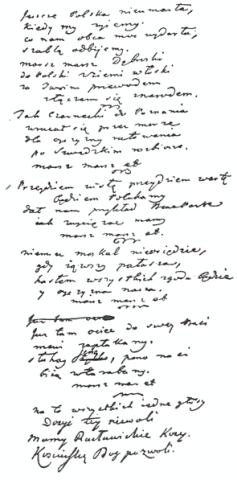 Jeszcze Polska nieumarła,
kiedy my żyjemy.
co nam obca moc wydarła,
szablą odbijemy.
marsz marsz Dąbroski
do Polski z ziemi włoski
za Twoim przewodem
złączem się z narodem.
Jak Czarnecki do Poznania
wracał się przez morze
dla ojczyzny ratowania
po szwedzkim rozbiorze.
marsz marsz et
Przejdziem Wisłę przejdziem Wartę
będziem Polakami
dał nam przykład Bonaparte
jak zwyciężać mamy
marsz marsz et.
niemiec moskal nieosiędzie,
gdy jąwszy pałasza,
hasłem wszystkich zgoda będzie
y ojczyzna nasza.
marsz marsz et
Już tam ociec do swey Basi
mówi zapłakany.
słuchay jeno, pono nasi
biią w tarabany.
marsz mar et
na to wszystkich iedne głosy
Dosyć tey niewoli
Mamy Racławickie Kosy.
Kościuszkę Bóg pozwoli.